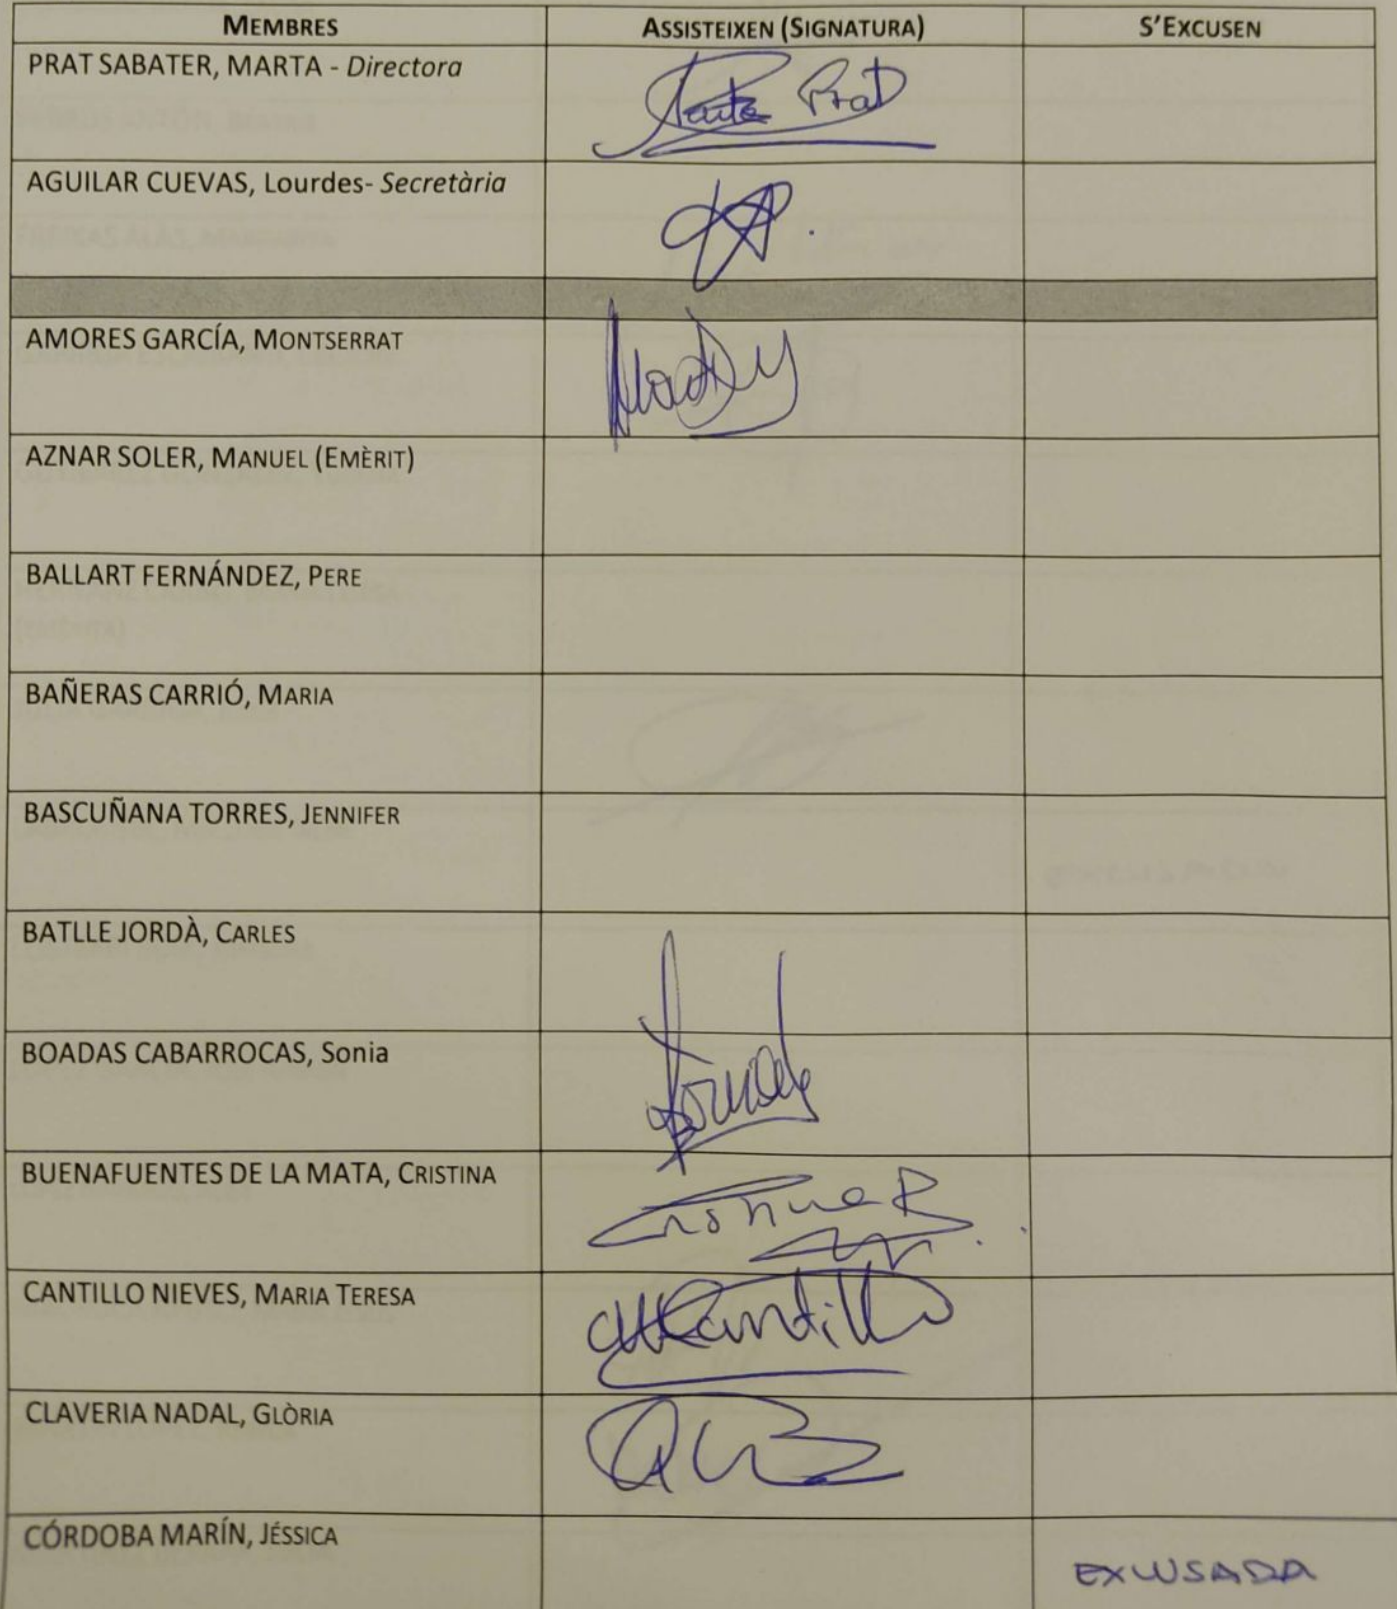 MEMBRES ASSISTEIXEN (SIGNATURA) S'EXCUSEN
PRAT SABATER, MARTA - Directora
Marta Prat
AGUILAR CUEVAS, Lourdes- Secretària
AMORES GARCÍA, MONTSERRAT
AZNAR SOLER, MANUEL (EMÈRIT)
BALLART FERNÁNDEZ, PERE
BAÑERAS CARRIÓ, MARIA
BASCUÑANA TORRES, JENNIFER
BATLLE JORDÀ, CARLES
BOADAS CABARROCAS, Sonia
BUENAFUENTES DE LA MATA, CRISTINA
CANTILLO NIEVES, MARIA TERESA
CLAVERIA NADAL, GLÒRIA
CÓRDOBA MARÍN, JÉSSICA
EXCUSADA